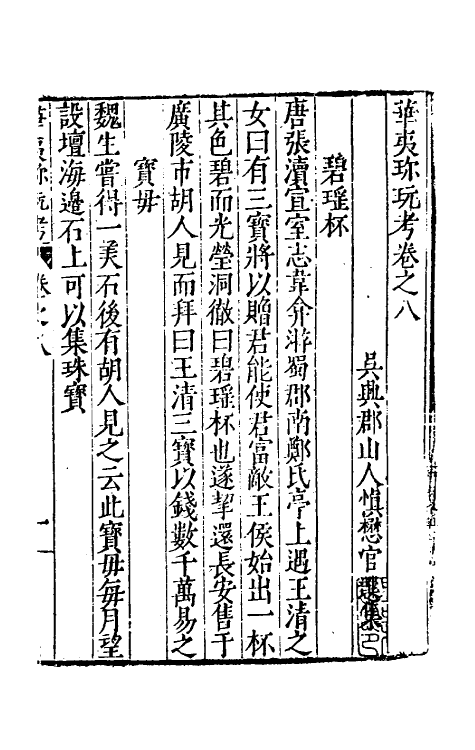 華夷珎玩考卷之八
吳興郡山人慎懋官選集
碧瑶杯
唐張瀆宣室志韋弇游蜀郡南鄭氏亭上遇王清之
女曰有三寶將以贈君能使君富敵王侯始出一杯
其色碧而光瑩洞徹曰碧瑶杯也遂挈還長安售于
廣陵市胡人見而拜曰王清三寶以錢數千萬易之
寶毋
魏生嘗得一美石後有胡人見之云此寶毋每月望
設壇海邉石上可以集珠寶
華夷珎玩考 卷之八 一